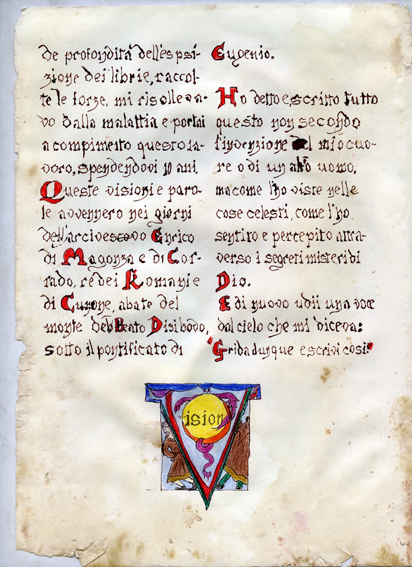 de profondità dell'espsi-
zione dei libri e, raccol-
te le forze, mi risolleva-
vo dalla malattia e portai
a compimento questo la-
voro, spendendovi 10 ani.
Queste visioni e paro-
le avvennero nei giorni
dell'arcivescovo Enrico
di Magonza e di Cor-
rado, re dei Romani e
di Cunone, abate del
monte del Beato Disibodo,
sotto il pontificato di
Eugenio.
Ho detto e scritto tutto
questo non secondo
l'invenzione del mio cuo-
re o di un altro uomo,
ma come l'ho viste nelle
cose celesti, come l'ho
sentito e percepito attra-
verso i segreti misteri di
Dio.
E di nuovo udii una voce
dal cielo che mi diceva:
"Grida dunque e scrivi così:"
Vision